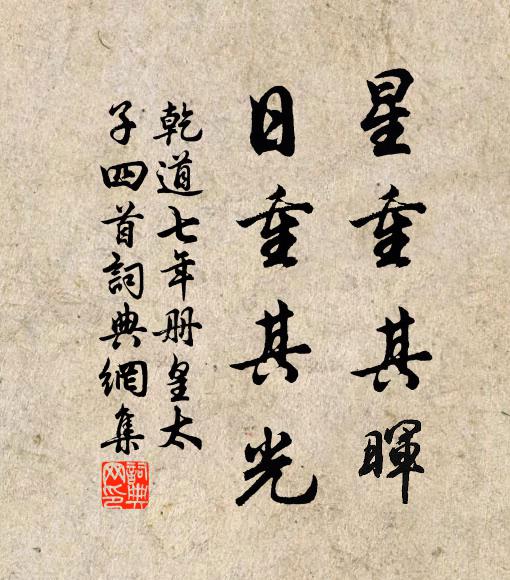 星重其暉
日重其光
乾道七年册皇太
子四首詞典網集
詞典
网印